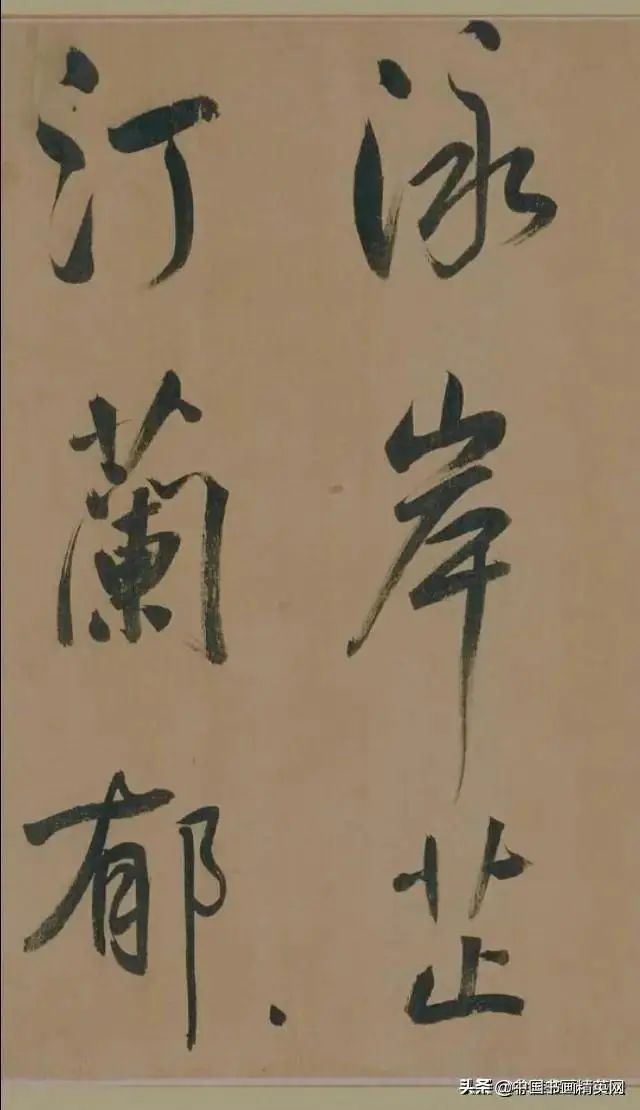 泳岸芷
汀蘭郁
头条 @中国书画精英网